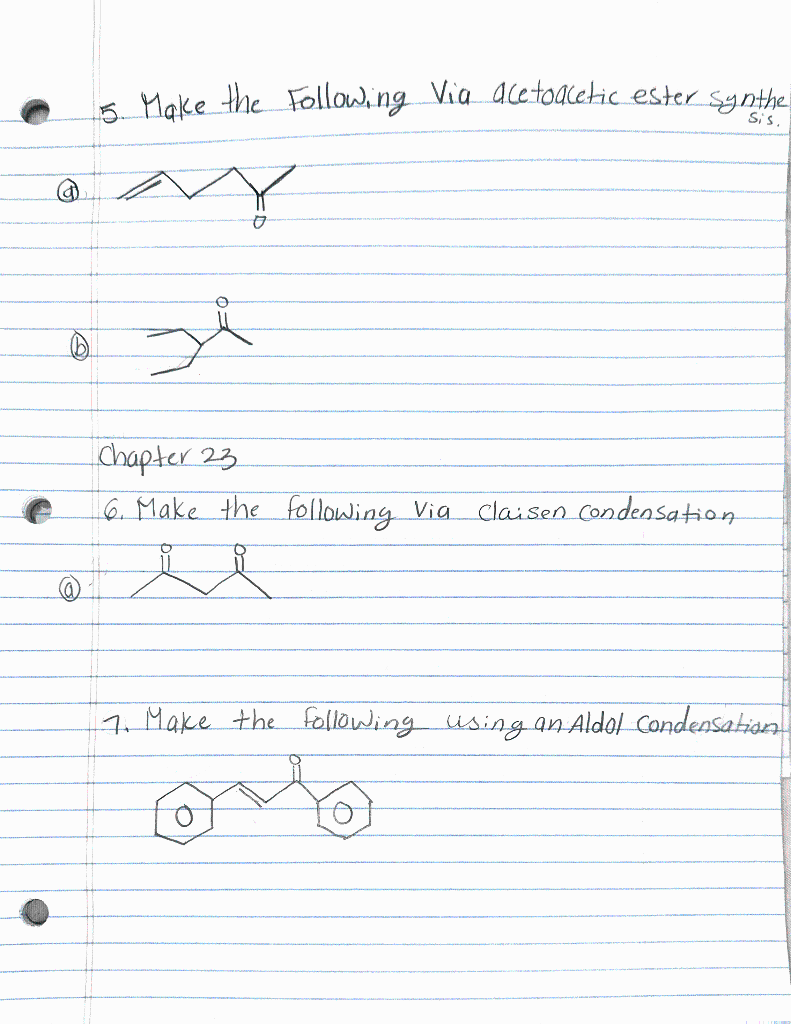 5. Make the Following Via acetoacetic ester synthe
sis.
a
O
O
b
Chapter 23
6. Make the following Via claisen condensation
O O
a
7. Make the following using an Aldol Condensation
O